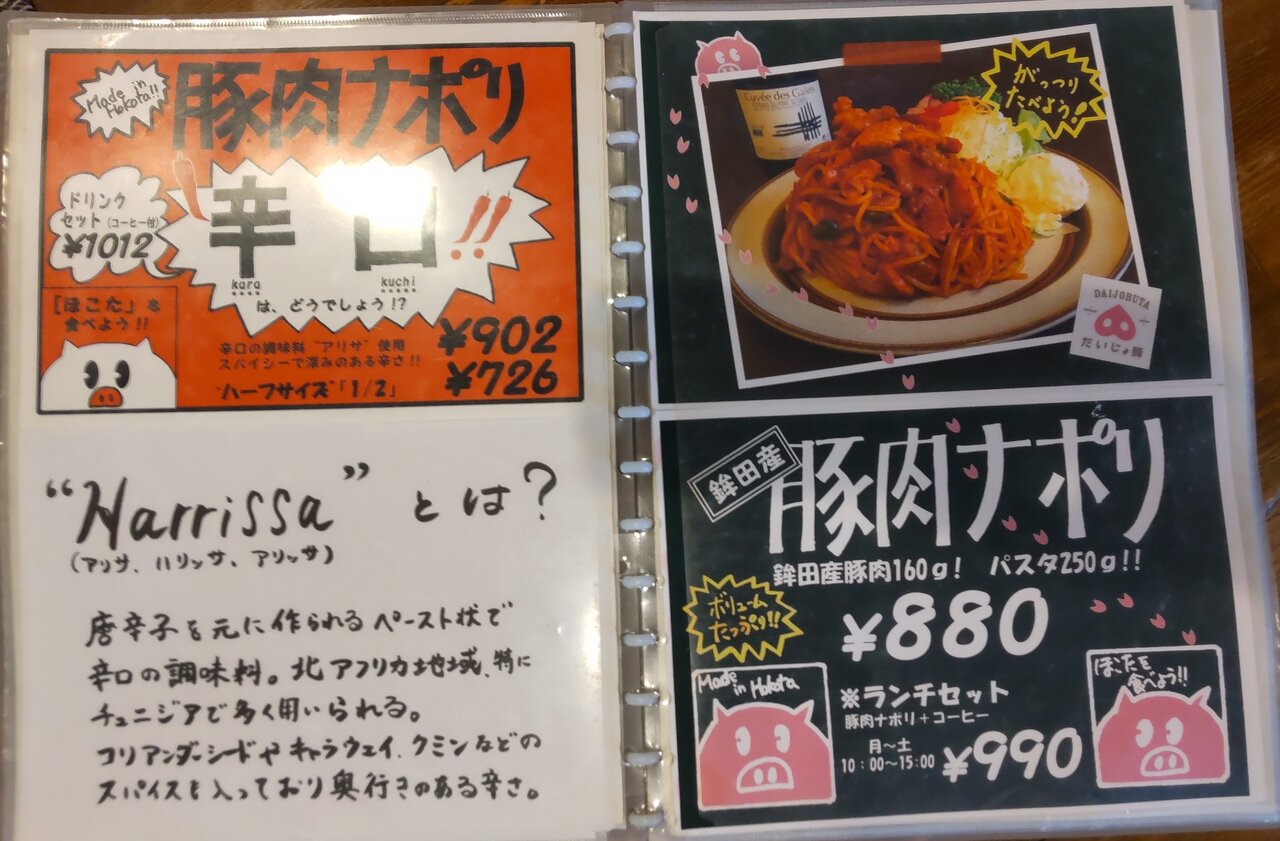 Made in Hokota!!
豚肉ナポリ
ドリンク
セット(コーヒー付)
¥1012
辛口!!
kara kuchi
は、どうでしょう!?
「ほこた」を
食べよう!!
辛口の調味料"アリサ"使用
スパイシーで深みのある辛さ!!
¥902
"ハーフサイズ"「1/2」
¥726
"Harrissa"とは?
(アリサ、ハリッサ、アリッサ)
唐辛子を元に作られるペースト状で
辛口の調味料。北アフリカ地域、特に
チュニジアで多く用いられる。
コリアンダーシードやキャラウェイ、クミンなどの
スパイスを入っており奥行きのある辛さ。
Cuvée des Galets
がっつり
たべよう!
DAIJOBUTA
だいじょ豚
鉾田産
豚肉ナポリ
鉾田産豚肉160g! パスタ250g!!
ボリューム
たっぷり!!
¥880
Made
in Hokota
※ランチセット
豚肉ナポリ+コーヒー
月~土
10:00~15:00
¥990
ほこたを
食べよう!!